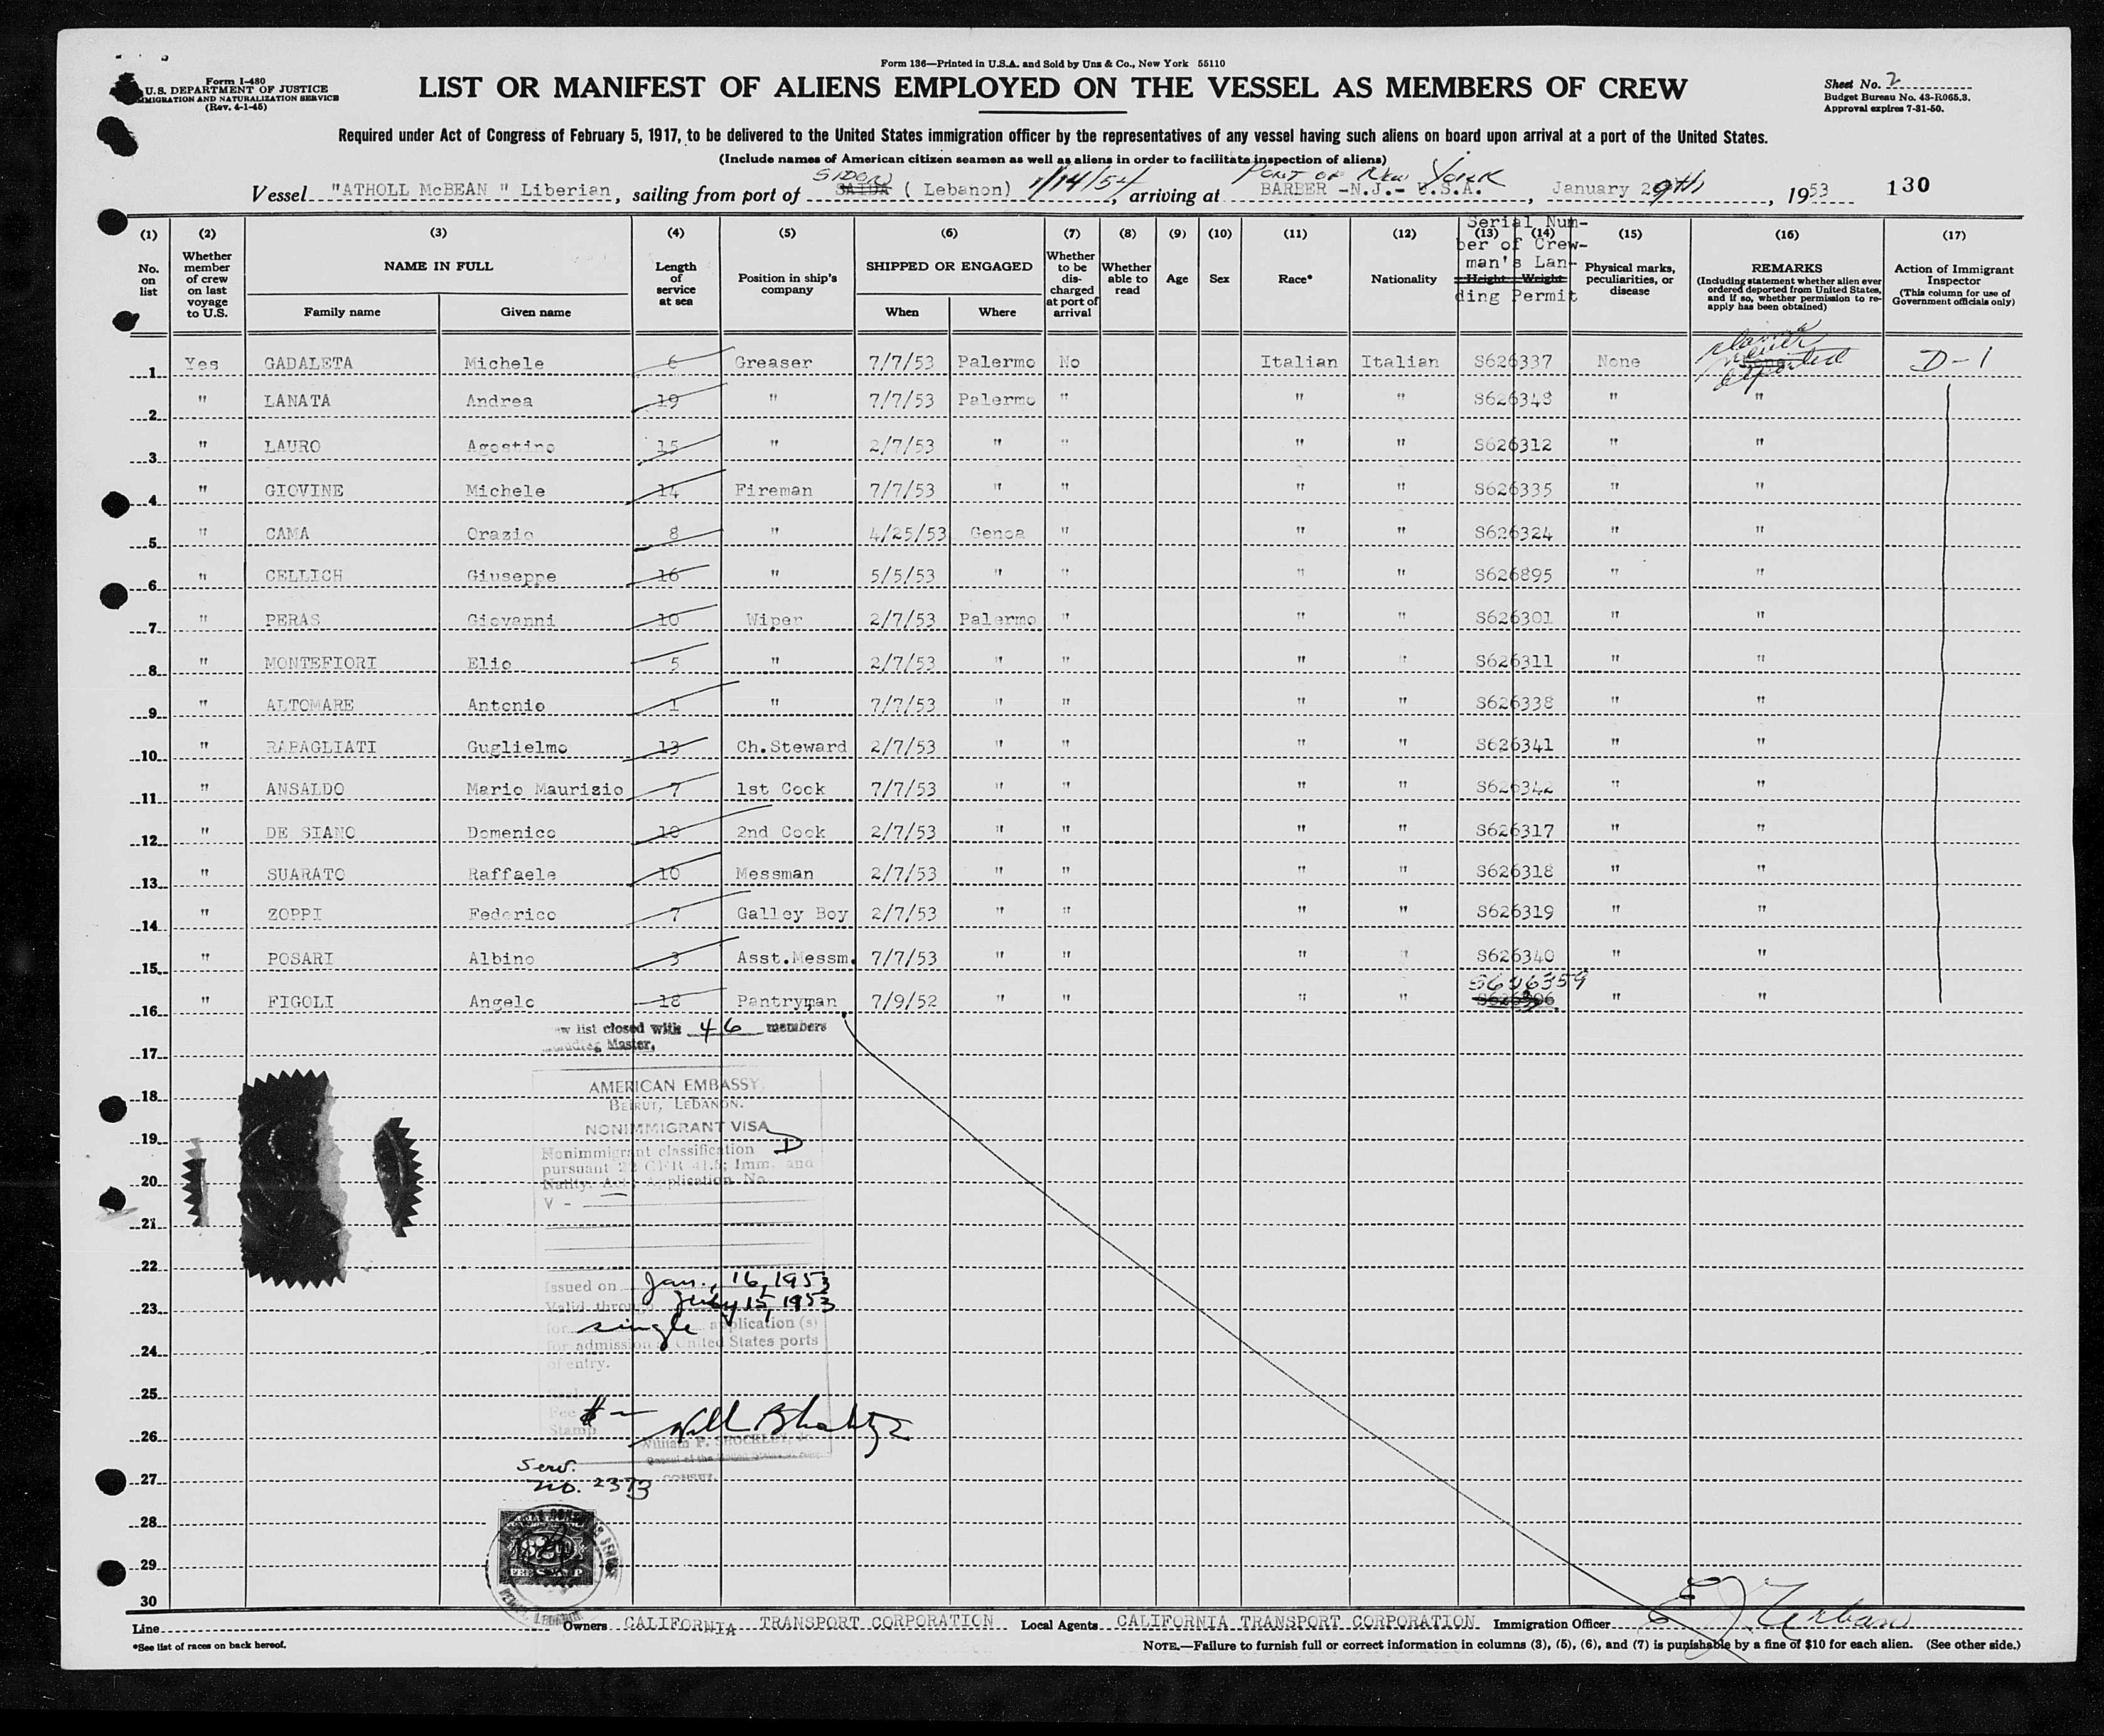 Form I-480
U.S. DEPARTMENT OF JUSTICE
IMMIGRATION AND NATURALIZATION SERVICE
(Rev. 4-1-45)
Form 136—Printed in U.S.A. and Sold by Unz & Co., New York 55110
LIST OR MANIFEST OF ALIENS EMPLOYED ON THE VESSEL AS MEMBERS OF CREW
Sheet No. 2
Budget Bureau No. 43-R065.3.
Approval expires 7-31-50.
Required under Act of Congress of February 5, 1917, to be delivered to the United States immigration officer by the representatives of any vessel having such aliens on board upon arrival at a port of the United States.
(Include names of American citizen seamen as well as aliens in order to facilitate inspection of aliens)
SIDON PORT OF NEW YORK
Vessel "ATHOLL McBEAN " Liberian, sailing from port of SAIDA ( Lebanon) 1/14/54, arriving at BARBER -N.J.- U.S.A., January 29th, 1953 130
(1) (2) (3) (4) (5) (6) (7) (8) (9) (10) (11) (12) (13) (14) (15) (16) (17)
No. on list
Whether member of crew on last voyage to U.S.
NAME IN FULL
Family name
Given name
Length of service at sea
Position in ship's company
SHIPPED OR ENGAGED
When
Where
Whether to be discharged at port of arrival
Whether able to read
Age
Sex
Race*
Nationality
Serial Num-
ber of Crew-
man's Lan-
Height Weight
ding Permit
Physical marks, peculiarities, or disease
REMARKS
(Including statement whether alien ever ordered deported from United States, and if so, whether permission to re-apply has been obtained)
Action of Immigrant Inspector
(This column for use of Government officials only)
1 Yes GADALETA Michele 6 Greaser 7/7/53 Palermo No Italian Italian S626337 None never deported D-1
2 " LANATA Andrea 19 " 7/7/53 Palermo " " " S626348 " "
3 " LAURO Agostino 15 " 2/7/53 " " " " S626312 " "
4 " GIOVINE Michele 14 Fireman 7/7/53 " " " " S626335 " "
5 " CAMA Orazio 8 " 4/25/53 Genoa " " " S626324 " "
6 " CELLICH Giuseppe 16 " 5/5/53 " " " " S626895 " "
7 " PERAS Giovanni 10 Wiper 2/7/53 Palermo " " " S626301 " "
8 " MONTEFIORI Elio 5 " 2/7/53 " " " " S626311 " "
9 " ALTOMARE Antonio 1 " 7/7/53 " " " " S626338 " "
10 " RABAGLIATI Guglielmo 13 Ch.Steward 2/7/53 " " " " S626341 " "
11 " ANSALDO Mario Maurizio 7 1st Cook 7/7/53 " " " " S626342 " "
12 " DE SIANO Domenico 18 2nd Cook 2/7/53 " " " " S626317 " "
13 " SUARATO Raffaele 10 Messman 2/7/53 " " " " S626318 " "
14 " ZOPPI Federico 7 Galley Boy 2/7/53 " " " " S626319 " "
15 " POSARI Albino 3 Asst.Messm. 7/7/53 " " " " S626340 " "
16 " FIGOLI Angelo 18 Pantryman 7/9/52 " " " " " "
list closed with 46 members
Master.
17
18
19
20
21
22
23
24
25
26
27
28
29
30
AMERICAN EMBASSY
BEIRUT, LEBANON.
NONIMMIGRANT VISA
D
Nonimmigrant classification
pursuant 22 CFR 41.5; Imm. and
Natlty. Act; Application No.
V -
Issued on Jan., 16, 1953
Valid through July 15, 1953
for single application (s)
for admission United States ports
of entry.
Fee $ —
Stamp
William P. SHOCKLEY, Jr.
CONSUL
Serv.
No. 2373
Line Owners CALIFORNIA TRANSPORT CORPORATION Local Agents CALIFORNIA TRANSPORT CORPORATION Immigration Officer
*See list of races on back hereof.
NOTE.—Failure to furnish full or correct information in columns (3), (5), (6), and (7) is punishable by a fine of $10 for each alien. (See other side.)